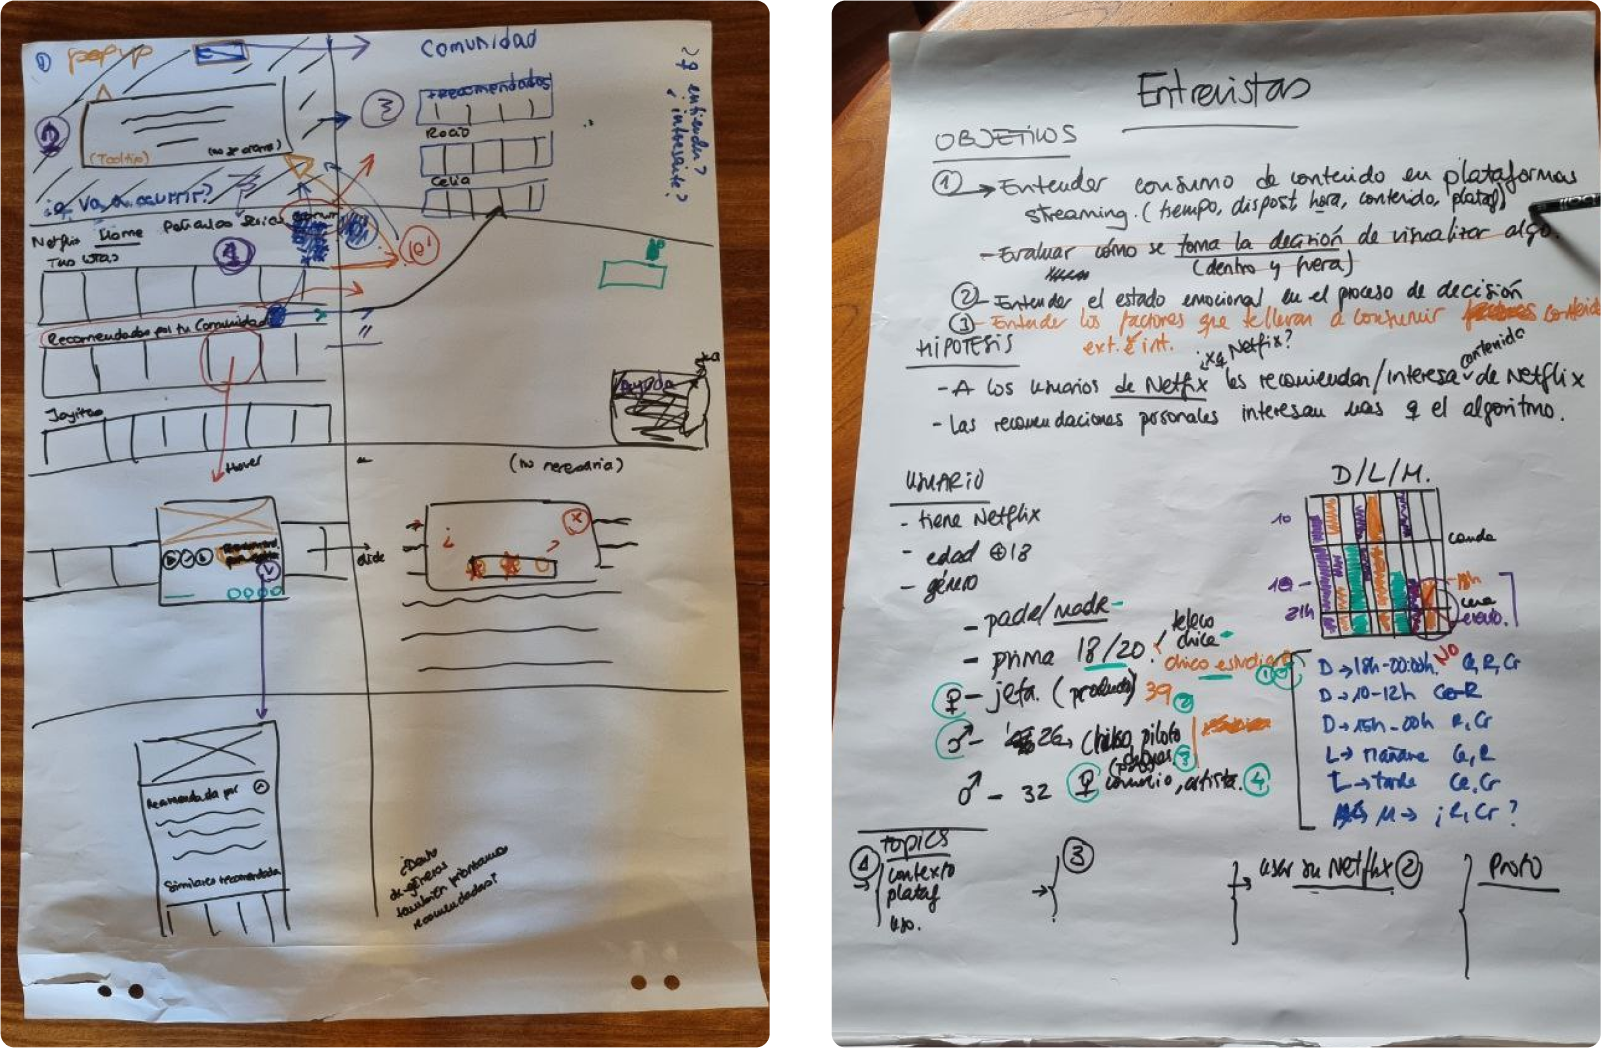 ① popup
COMUNIDAD
¿q entiende?
¿interesante?
③
+recomendados
Rocío
Celia
(Tooltip)
¿q va a ocurrir?
Netflix Home Películas Series
Tus listas
Recomendados por tu Comunidad
Joyitas
Ayuda
Hover
(no necesaria)
click
Recomendada por
Similares recomendada
¿Dentro
de géneros
también priorizamos
recomendados?
Entrevistas
OBJETIVOS
① → Entender consumo de contenido en plataformas
streaming. (tiempo, disposit, hora, contenido, plataf)
- Evaluar cómo se toma la decisión de visualizar algo.
(dentro y fuera)
② - Entender el estado emocional en el proceso de decisión
③ - Entender los factores que te llevan a consumir contenido
ext. e int.
HIPOTESIS
¿xq Netflix?
- A los usuarios de Netflix les recomiendan/interesa contenido de Netflix
- Las recomendaciones personales interesan más q el algoritmo.
USUARIO
- tiene Netflix
- edad ⊕18
- género
- padre/madre
- prima 18/20.
teleco
chica
chico estudiante
♀ - jefa. (producto) 39 ②
♂ - 26 → chico, piloto
③
♂ - 32 ♀ comercio, artista. ④
D/L/M.
10
comida
18h
21h
cena
NO
D → 18h-00:00h. C, R, Cr
D → 10-12h Ce-R
D → 15h-00h R, Cr
L → Mañana Ce, R
L → tarde Ce, Cr
M → ¡R, Cr?
TOPICS
①
contexto
plataf
uso.
③
usar su Netflix ②
Proto